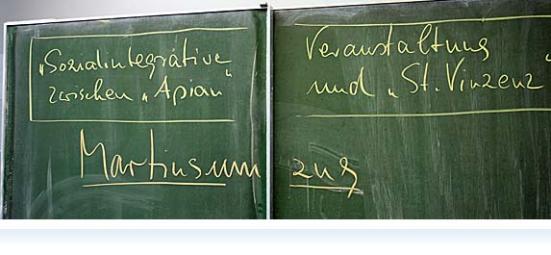 „Sozialintegrative Veranstaltung
zwischen „Apian“ und „St. Vinzenz“
Martinsumzug